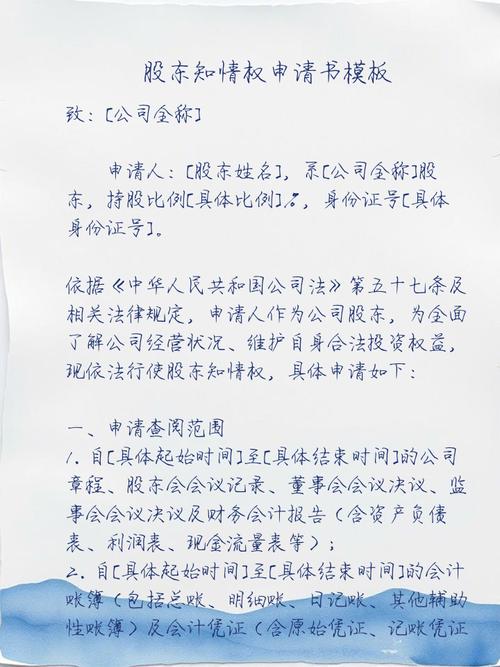 股东知情权申请书模板
致：[公司全称]
申请人：[股东姓名]，系[公司全称]股
东，持股比例[具体比例]%，身份证号[具体
身份证号]。
依据《中华人民共和国公司法》第五十七条及
相关法律规定，申请人作为公司股东，为全面
了解公司经营状况、维护自身合法投资权益，
现依法行使股东知情权，具体申请如下：
一、申请查阅范围
1. 自[具体起始时间]至[具体结束时间]的公司
章程、股东会会议记录、董事会会议决议、监
事会会议决议及财务会计报告（含资产负债
表、利润表、现金流量表等）；
2. 自[具体起始时间]至[具体结束时间]的会计
账簿（包括总账、明细账、日记账、其他辅助
性账簿）及会计凭证（含原始凭证、记账凭证